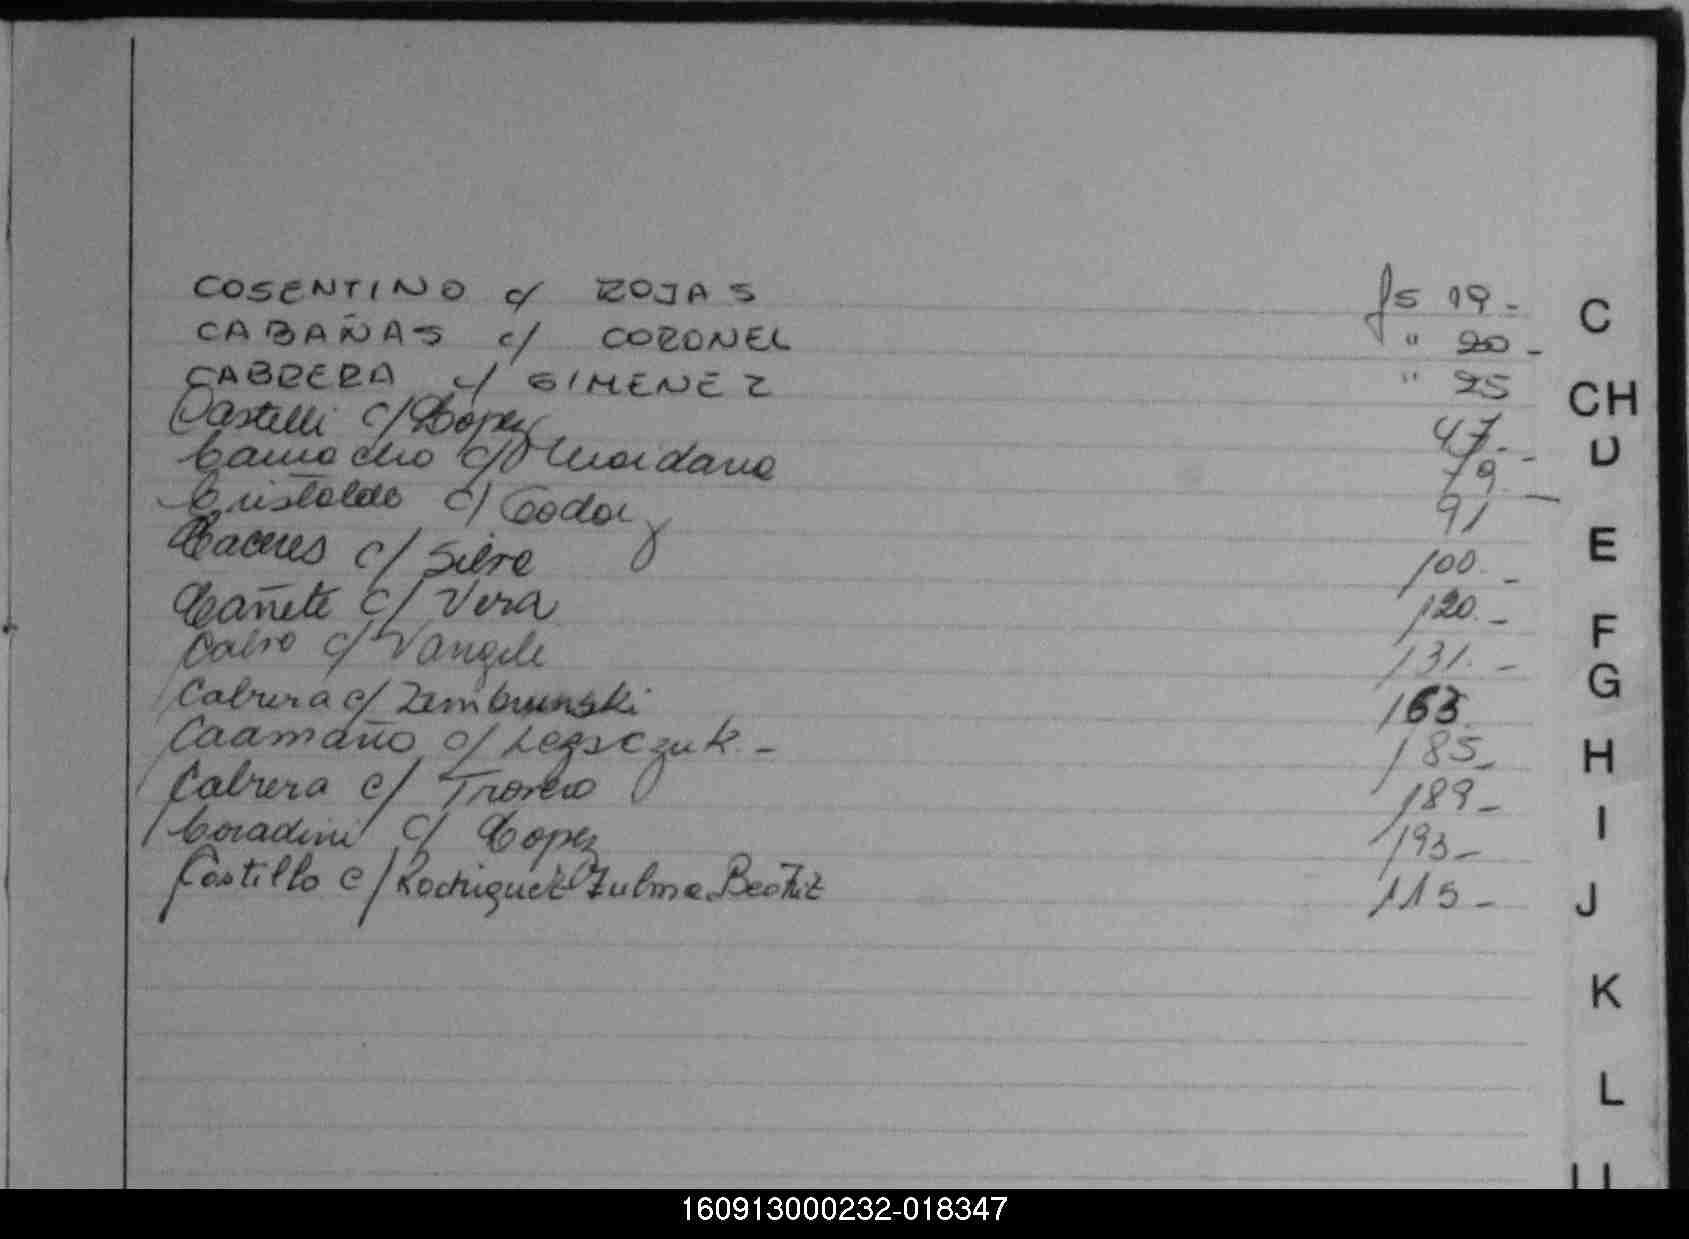 COSENTINO c/ ROJAS fs 19.-
CABAÑAS c/ CORONEL " 20-
CABRERA c/ GIMENEZ " 25
Castelli c/ Lopez 47.-
Camacho c/ 79.-
Cristaldo c/ Godoy 91
Caceres c/ 100.-
Cañete c/ Vera 120.-
Calvo c/ Vangeli 131.-
Cabrera c/ Zembrunski 163
Caamaño c/ 185-
Cabrera c/ 189-
Coradini c/ Lopez 193-
Castillo c/ Rodriguez Zulma Beatriz 115-
C
CH
D
E
F
G
H
I
J
K
L
160913000232-018347